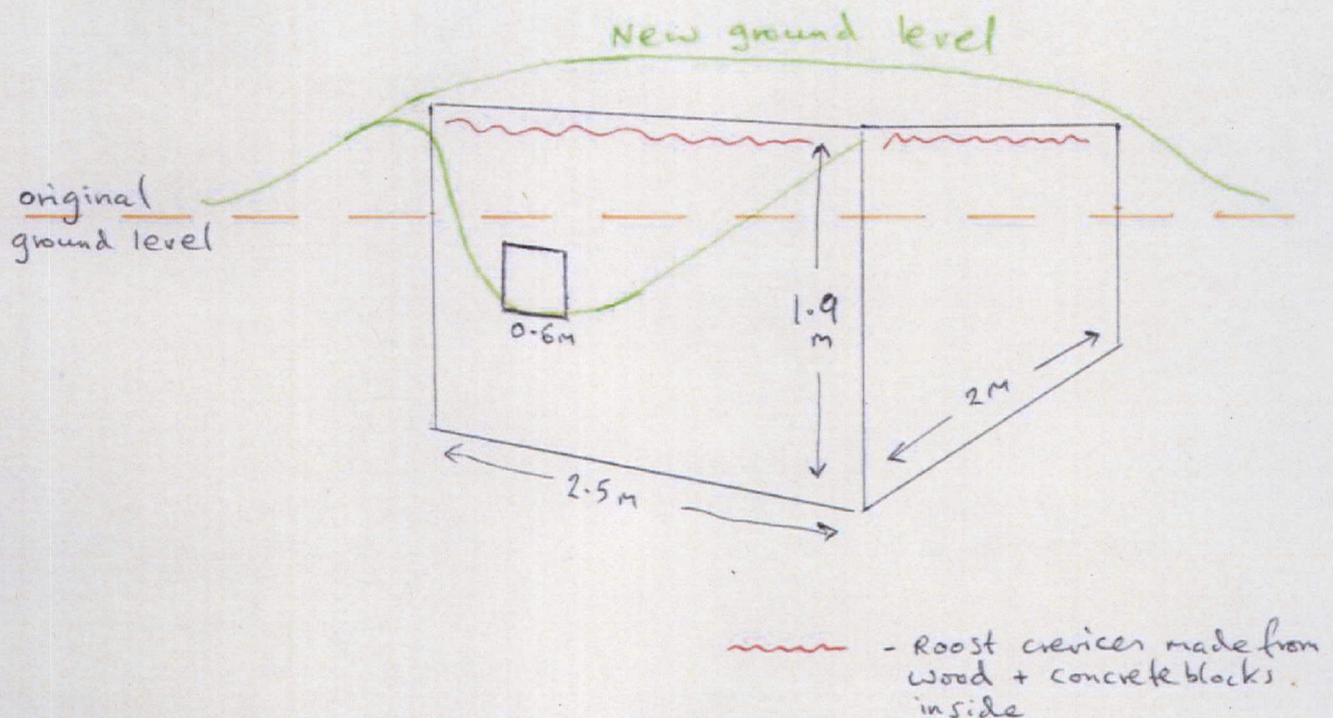 New ground level
original
ground level
0.6m
1.9
m
2m
2.5m
- Roost crevices made from
wood + concrete blocks.
inside